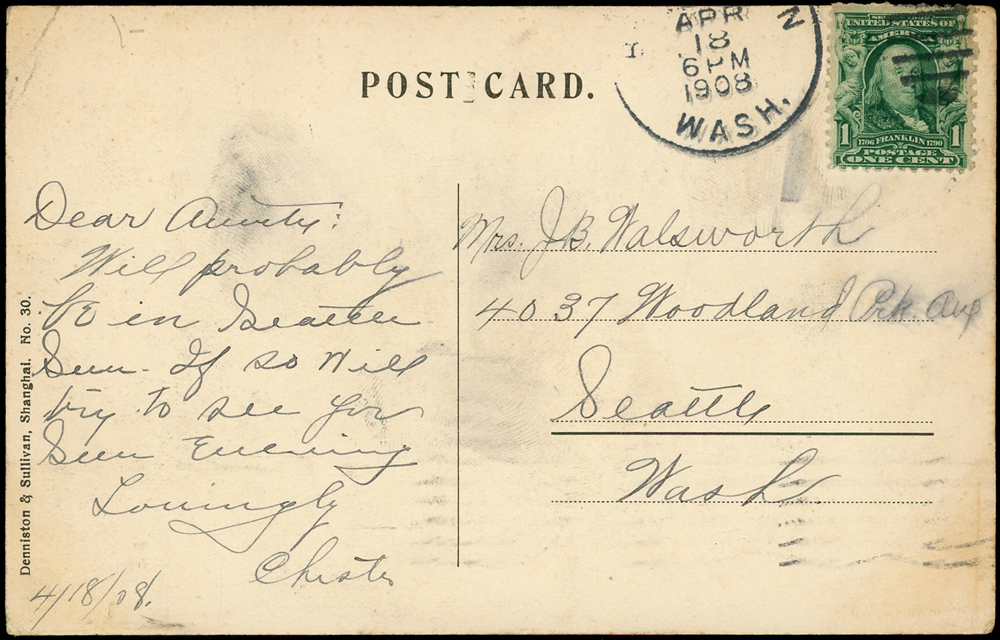 POST CARD.
APR
N
18
6 PM
1908
WASH.
UNITED STATES OF
AMERICA
1
1706 FRANKLIN 1790
1
POSTAGE
ONE CENT
Dear Aunty:
Will probably
be in Seattle
Sun. If so will
try to see you
Sun Evening
Lovingly
Chester
4/18/08.
Mrs. J.B. Walsworth
4037 Woodland Prk. Ave
Seattle
Wash.
Denniston & Sullivan, Shanghai. No. 30.